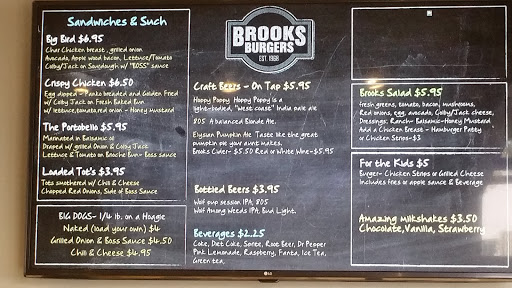 Sandwiches & Such
Big Bird $6.95
Char Chicken breast, grilled onion
Avocado, Apple wood bacon, Lettuce/Tomato
Colby/Jack on Sourdough w/ "BOSS" sauce
Crispy Chicken $6.50
Egg dipped - Panko breaded and Golden Fried
w/ Colby Jack on Fresh Baked Bun
w/ lettuce,tomato,red onion - Honey mustard
The Portobello $5.95
Marinated in Balsamic or
Draped w/ grilled Onion & Colby Jack
Lettuce & Tomato on Broche Bun- Boss sauce
Loaded Tot's $3.95
Tots smothered w/ Chili & Cheese
Chopped Red Onions, Side of Boss Sauce
BIG DOGS- 1/4 lb. on a Hoagie
Naked (load your own) $4
Grilled Onion & Boss Sauce $4.50
Chili & Cheese $4.95
BROOKS
BURGERS
EST. 1968
Craft Beers - On Tap $5.95
Hoppy Poppy Hoppy Poppy is a
light-bodied, "west coast" India pale ale
805 A balanced Blonde Ale.
Elysian Pumpkin Ale Taste like the great
pumpkin pie your aunt makes.
Brooks Cider- $5.50 Red or White Wine-$5.95
Bottled Beers $3.95
Wolf pup session IPA, 805
Wolf Among Weeds IPA, Bud Light.
Beverages $2.25
Coke, Diet Coke, Sprite, Root Beer, Dr Pepper
Pink Lemonade, Raspberry, Fanta, Ice Tea,
Green tea
Brooks Salad $5.95
fresh greens, tomato, bacon, mushrooms,
Red onions, egg, avocado, Colby/Jack cheese,
Dressings: Ranch- Balsamic-Honey Mustard
Add a Chicken Breast - Hamburger Patty
or Chicken Strips-$3
For the Kids $5
Burger- Chicken Strips or Grilled Cheese
Includes fries or apple sauce & Beverage
Amazing Milkshakes $3.50
Chocolate,Vanilla, Strawberry
LG